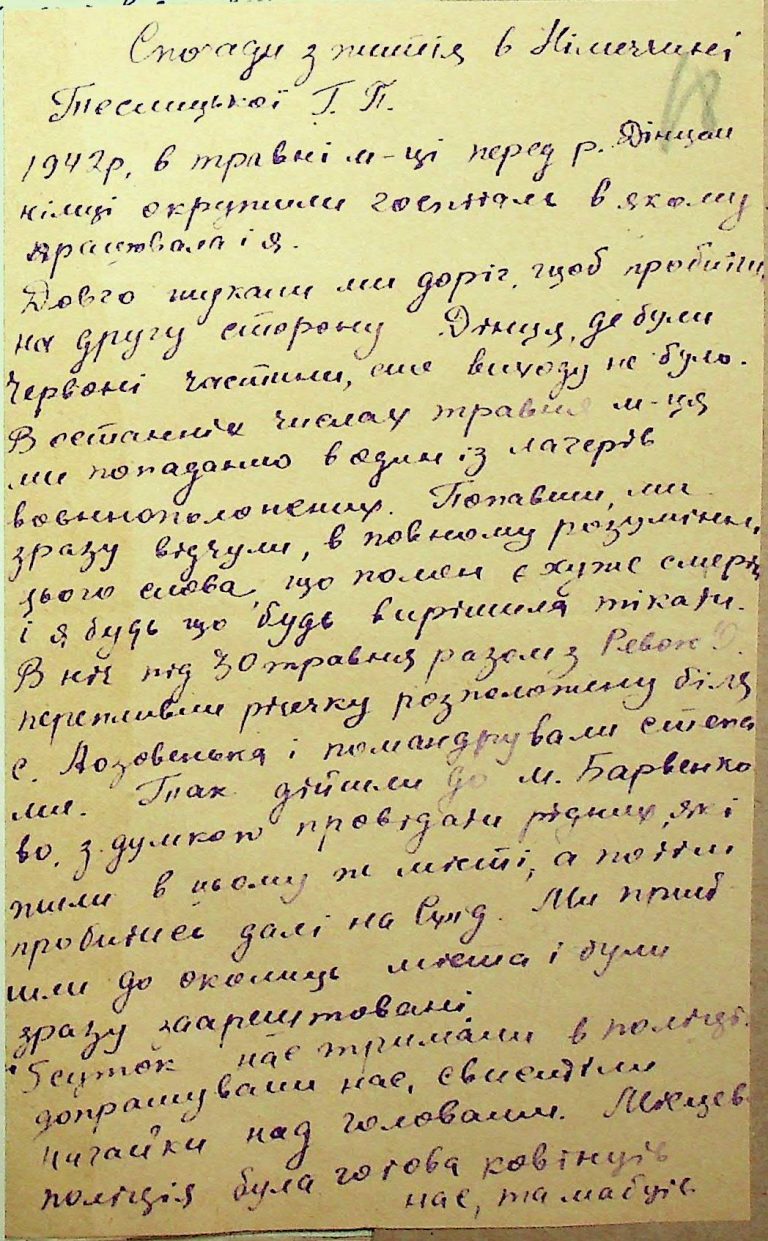 Спогади з життя в Німеччині
Теслицької Г. П.
18
1942 р. в травні м-ці перед р. Дінцем
німці окружили госпіталь в якому
працювала і я.
Довго шукали ми доріг, щоб пробитись
на другу сторону Дінця, де були
червоні частини, але виходу не було.
В останніх числах травня м-ця
ми попадаємо в один із лагерів
военнополонених. Попавши, ми
зразу відчули, в повному розумінні
цього слова, що полон є хуже смерті
і я будь що будь вирішила тікати.
В ніч під 30 травня разом з Ревок О.
перепливши річечку розположену біля
с. Лозовенька і помандрували степа
ми. Так дійшли до м. Барвенко
во, з думкою провідати рідних, які
жили в цьому ж місті, а потім
пробитись далі на Схід. Ми прий
шли до околиць міста і були
зразу заарештовані.
5 суток нас тримали в поліції.
допрашували нас, свистіли
нагайки над головами. Місцева
поліція була готова
нас, та мабуть